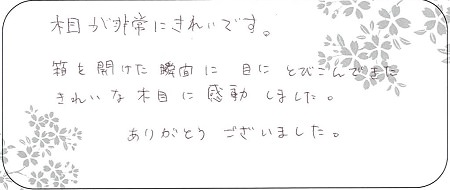 木目が非常にきれいです。
箱を開けた瞬間に目にとびこんできた
きれいな木目に感動しました。
ありがとうございました。